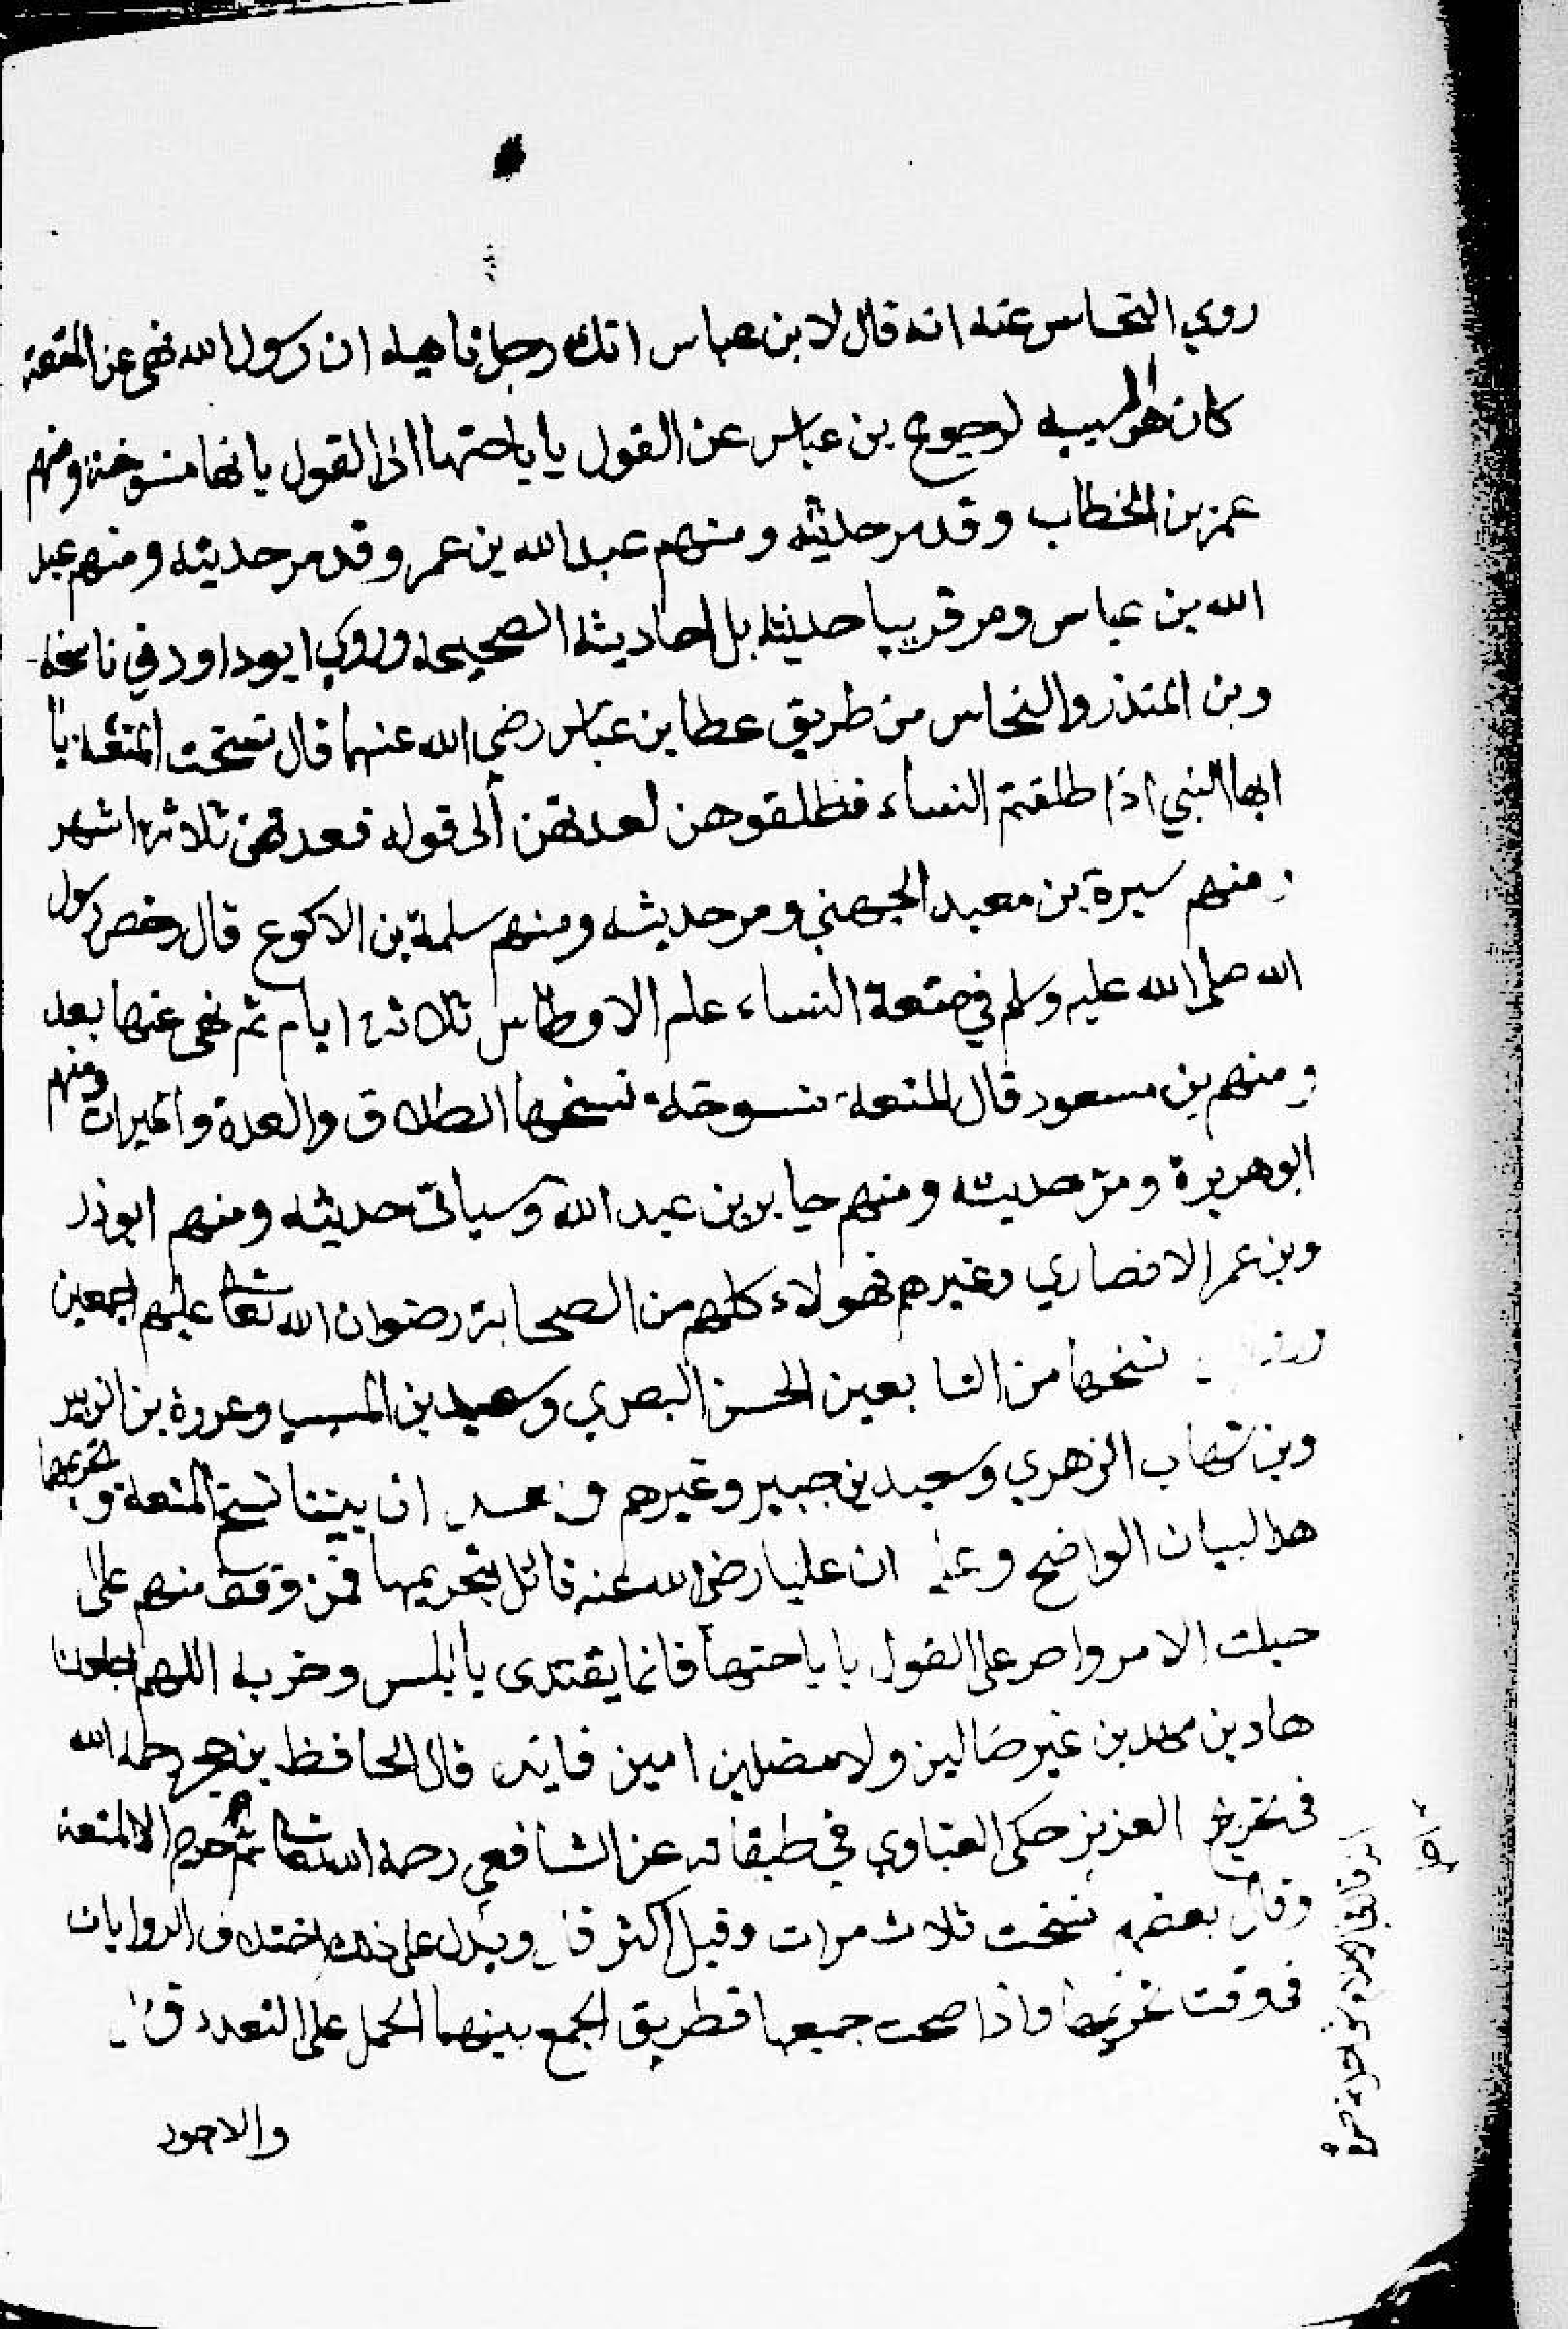 روي النحاس عنه انه قال لابن عباس انك رجل تايه ان رسول الله نهى عن المتعة
كان هو السبب لرجوع بن عباس عن القول باباحتها الى القول بانها منسوخة ومنهم
عمر بن الخطاب وقد مر حديثه ومنهم عبد الله بن عمر وقد مر حديثه ومنهم عبد
الله بن عباس ومر قريبا حديثه بل احاديثه الصحيحه وروى ابو داود في ناسخه
وبن المنذر والنحاس من طريق عطا بن عباس رضي الله عنهما قال نسخت المتعة يا
ايها النبي اذا طلقتم النساء فطلقوهن لعدتهن الى قوله فعدتهن ثلاثة اشهر
ومنهم سبرة بن معبد الجهني ومر حديثه ومنهم سلمة بن الاكوع قال رخص رسول
الله صلى الله عليه وسلم في متعة النساء علم الاوطاس ثلاثة ايام ثم نهى عنها بعد
ومنهم بن مسعود قال المتعة منسوخة نسخها الطلاق والعدة والميراث ومنهم
ابو هريرة ومر حديثه ومنهم جابر بن عبد الله وسياتي حديثه ومنهم ابوذر
وبن عمر الانصاري وغيرهم فهولاء كلهم من الصحابة رضوان الله تعالى عليهم اجمعين
نسخها من التابعين الحسن البصري وسعيد بن المسيب وعروة بن الزبير
وبن شهاب الزهري وسعيد بن جبير وغيرهم وبعد ان بينا نسخ المتعة وتحريمها
هذا البيان الواضح وعلم ان عليا رضي الله عنه قائل بتحريمها فمن وقف منهم على
جلية الامر واصر على القول باباحتها فانما يقتدى بابلس وحزبه اللهم اجعلنا
هادين مهدين غير ضالين ولا مضلين امين فايدة قال الحافظ بن حجر رحمه الله
في تخريج العزيز حكى العبادي في طبقاته عن الشافعي رحمه الله تعالى ثم حرم الا المتعة
وقال بعضهم نسخت ثلاث مرات وقيل اكثر قال ويدل على ذلك اختلاف الروايات
في وقت تحريمها واذا صحت جميعها فطريق الجمع بينهما الحمل على التعدد قال
والاجود